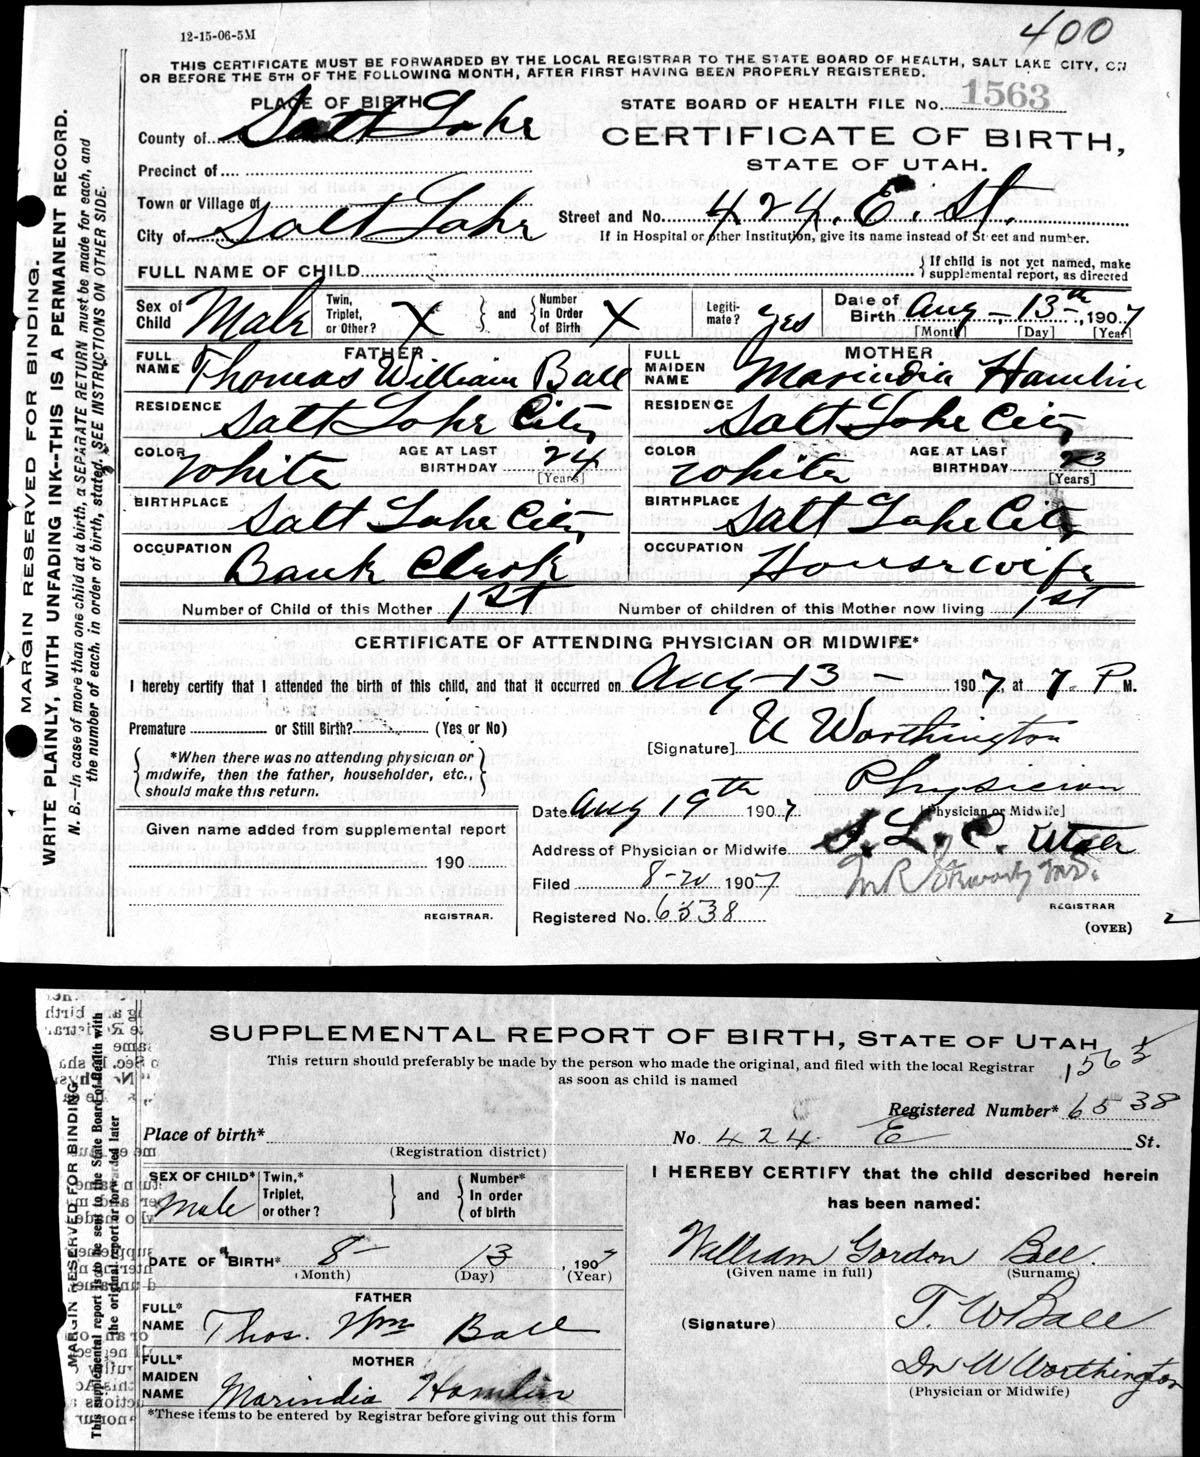 12-15-06-5M
400
THIS CERTIFICATE MUST BE FORWARDED BY THE LOCAL REGISTRAR TO THE STATE BOARD OF HEALTH, SALT LAKE CITY, ON
OR BEFORE THE 5TH OF THE FOLLOWING MONTH, AFTER FIRST HAVING BEEN PROPERLY REGISTERED.
PLACE OF BIRTH
STATE BOARD OF HEALTH FILE No. 1563
County of Salt Lake
CERTIFICATE OF BIRTH,
STATE OF UTAH.
Precinct of
Town or Village of
Street and No. 424. E. St.
City of Salt Lake
If in Hospital or other Institution, give its name instead of Street and number.
FULL NAME OF CHILD
If child is not yet named, make
supplemental report, as directed
Sex of Child Male
Twin, Triplet, or Other? X and Number In Order of Birth X
Legitimate? yes
Date of Birth Aug - 13th -, 1907
[Month] [Day] [Year]
FATHER
MOTHER
FULL NAME Thomas William Ball
FULL MAIDEN NAME Marindia Hamlin
RESIDENCE Salt Lake City
RESIDENCE Salt Lake City
COLOR White AGE AT LAST BIRTHDAY 24 [Years]
COLOR White AGE AT LAST BIRTHDAY 23 [Years]
BIRTHPLACE Salt Lake City
BIRTHPLACE Salt Lake City
OCCUPATION Bank Clerk
OCCUPATION Housewife
Number of Child of this Mother 1st
Number of children of this Mother now living 1st
CERTIFICATE OF ATTENDING PHYSICIAN OR MIDWIFE*
I hereby certify that I attended the birth of this child, and that it occurred on Aug - 13 - 1907, at 7. P M.
Premature or Still Birth? (Yes or No)
[Signature] U Worthington
*When there was no attending physician or
midwife, then the father, householder, etc.,
should make this return.
Physician
[Physician or Midwife]
Date Aug 19th 1907
Given name added from supplemental report
190
REGISTRAR.
Address of Physician or Midwife S. L. C. Utah
Filed 8-20 1907
Registered No. 6538
REGISTRAR
(OVER)
MARGIN RESERVED FOR BINDING.
WRITE PLAINLY, WITH UNFADING INK--THIS IS A PERMANENT RECORD.
N. B.—In case of more than one child at a birth, a SEPARATE RETURN must be made for each, and
the number of each, in order of birth, stated. SEE INSTRUCTIONS ON OTHER SIDE.
SUPPLEMENTAL REPORT OF BIRTH, STATE OF UTAH
This return should preferably be made by the person who made the original, and filed with the local Registrar
as soon as child is named
Registered Number* 6538
Place of birth*
No. 424 E St.
(Registration district)
SEX OF CHILD* Male
Twin,* Triplet, or other? and Number* In order of birth
I HEREBY CERTIFY that the child described herein
has been named:
William Gordon Ball.
(Given name in full) (Surname)
DATE OF BIRTH* 8- 13, 1907
(Month) (Day) (Year)
FATHER
FULL* NAME Thos. Wm Ball
(Signature) T. W Ball
MOTHER
FULL* MAIDEN NAME Marindia Hamlin
Dr W Worthington
(Physician or Midwife)
*These items to be entered by Registrar before giving out this form
MARGIN RESERVED FOR BINDING
This supplemental report is to be sent to the State Board of Health with
the original report or forwarded later